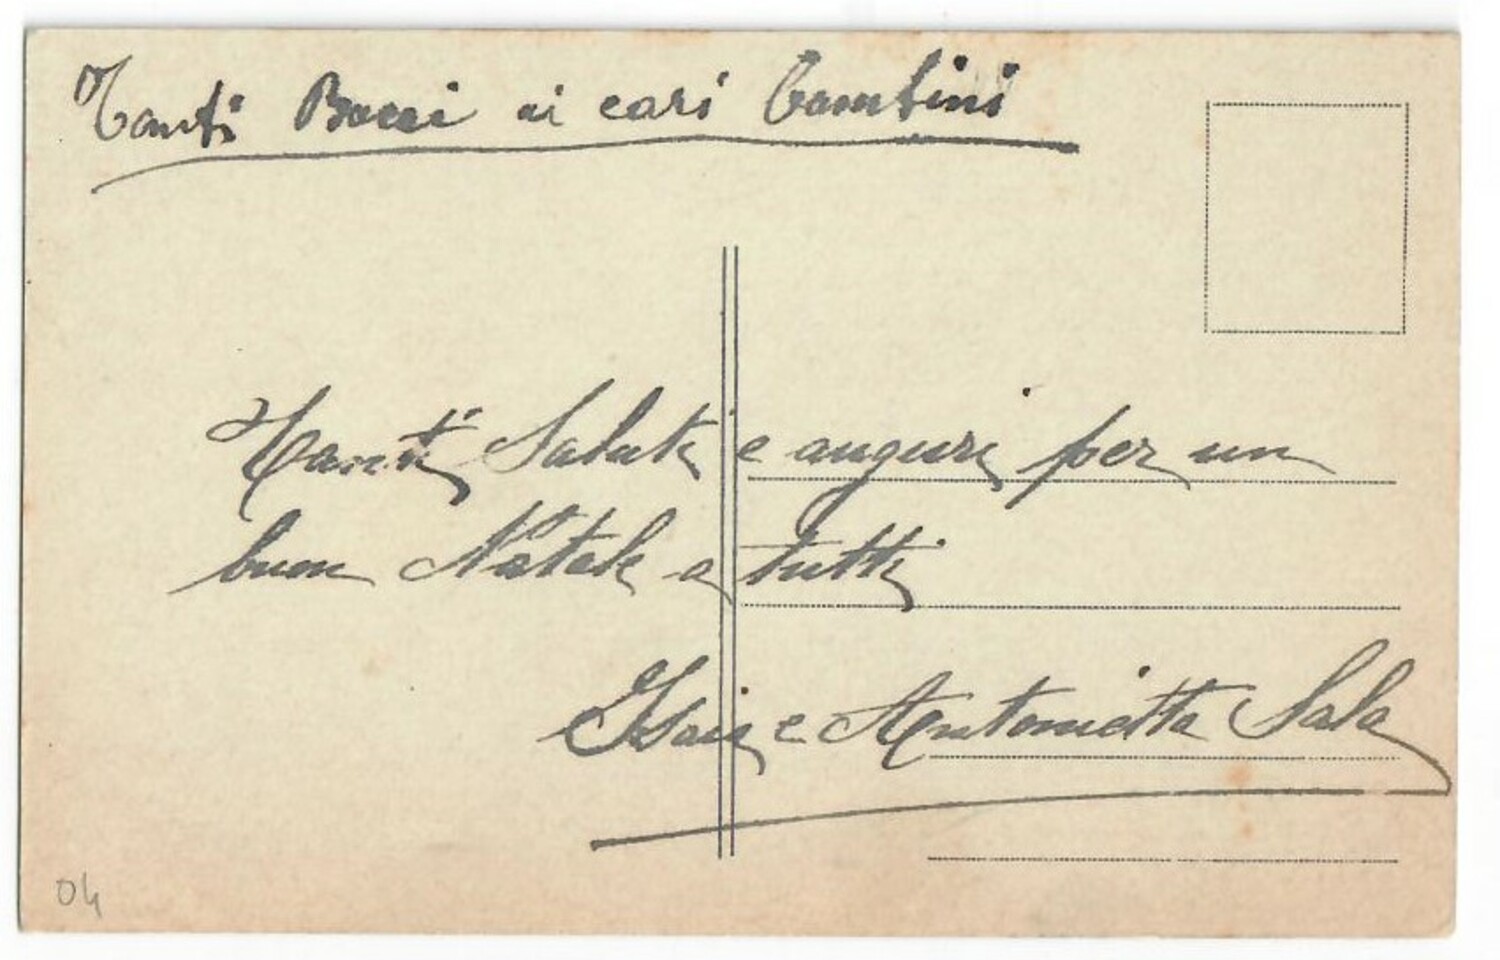 Tanti Bacci ai cari bambini
Tanti Saluti e auguri per un
buon Natale a tutti
e Antonietta Sala
04